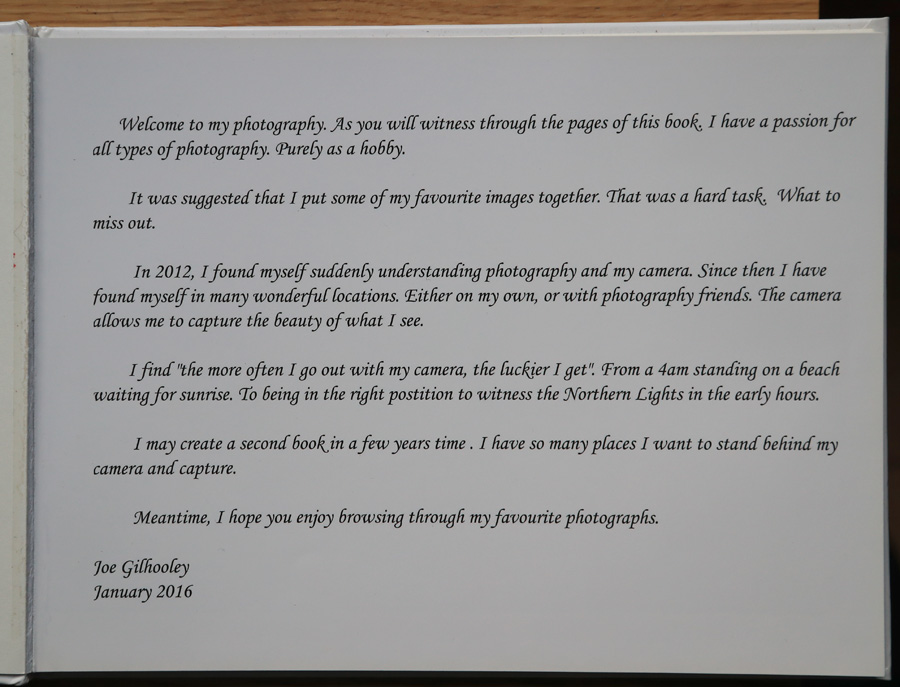 Welcome to my photography. As you will witness through the pages of this book, I have a passion for
all types of photography. Purely as a hobby.
It was suggested that I put some of my favourite images together. That was a hard task. What to
miss out.
In 2012, I found myself suddenly understanding photography and my camera. Since then I have
found myself in many wonderful locations. Either on my own, or with photography friends. The camera
allows me to capture the beauty of what I see.
I find "the more often I go out with my camera, the luckier I get". From a 4am standing on a beach
waiting for sunrise. To being in the right postition to witness the Northern Lights in the early hours.
I may create a second book in a few years time . I have so many places I want to stand behind my
camera and capture.
Meantime, I hope you enjoy browsing through my favourite photographs.
Joe Gilhooley
January 2016